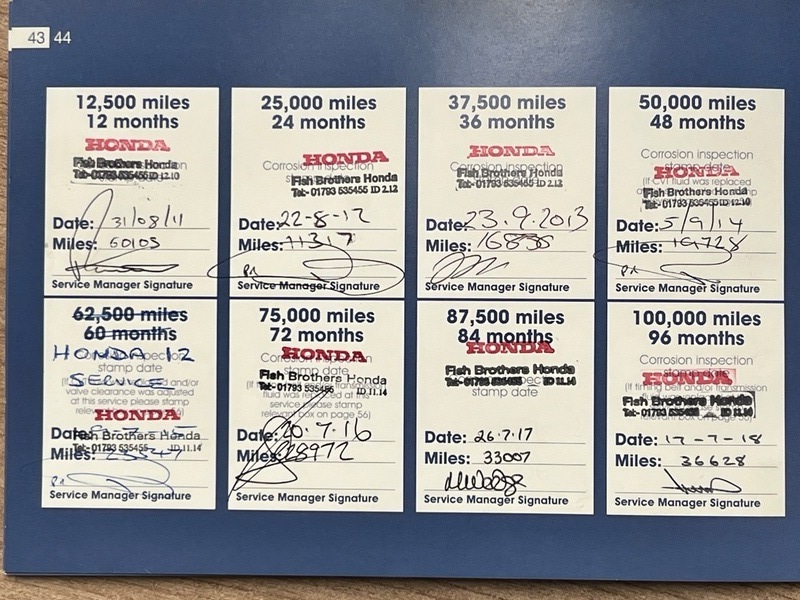 43 44
12,500 miles
12 months
HONDA
Fish Brothers Honda
Tel:- 01793 535455 ID 12.10
Date: 31/08/11
Miles:
Service Manager Signature
25,000 miles
24 months
Corrosion inspection
HONDA
Fish Brothers Honda
Tel:- 01793 535455 ID 2.12
Date: 22-8-12
Miles: 11317
Service Manager Signature
37,500 miles
36 months
HONDA
Corrosion inspection
Fish Brothers Honda
Tel:- 01793 535455 ID 2.12
Date: 23.9.2013
Miles:
Service Manager Signature
50,000 miles
48 months
Corrosion inspection
stamp date
HONDA
(If CVT fluid was replaced
Fish Brothers Honda
Tel:- 01793 535455 ID 12.10
Date: 5/9/14
Miles: 19728
Service Manager Signature
62,500 miles
60 months
HONDA 12
SERVICE
stamp date
valve clearance was adjusted
at this service please stamp
HONDA
Fish Brothers Honda
Tel:- 01793 535455 ID.11.14
Date:
Miles:
Service Manager Signature
75,000 miles
72 months
HONDA
Corrosion inspection
stamp date
Fish Brothers Honda
Tel:- 01793 535455 ID.11.14
fluid was replaced at this
service please stamp
relevant box on page 56)
Date: 20.7.16
Miles: 28972
Service Manager Signature
87,500 miles
84 months
HONDA
Fish Brothers Honda
Tel:- 01793 535455 ID 11.14
stamp date
Date: 26.7.17
Miles: 33007
Service Manager Signature
100,000 miles
96 months
Corrosion inspection
stamp date
HONDA
(If timing belt and/or transmission
Fish Brothers Honda
Tel:- 01793 535455 ID 11.14
relevant box on page 56)
Date: 17-7-18
Miles: 36628
Service Manager Signature